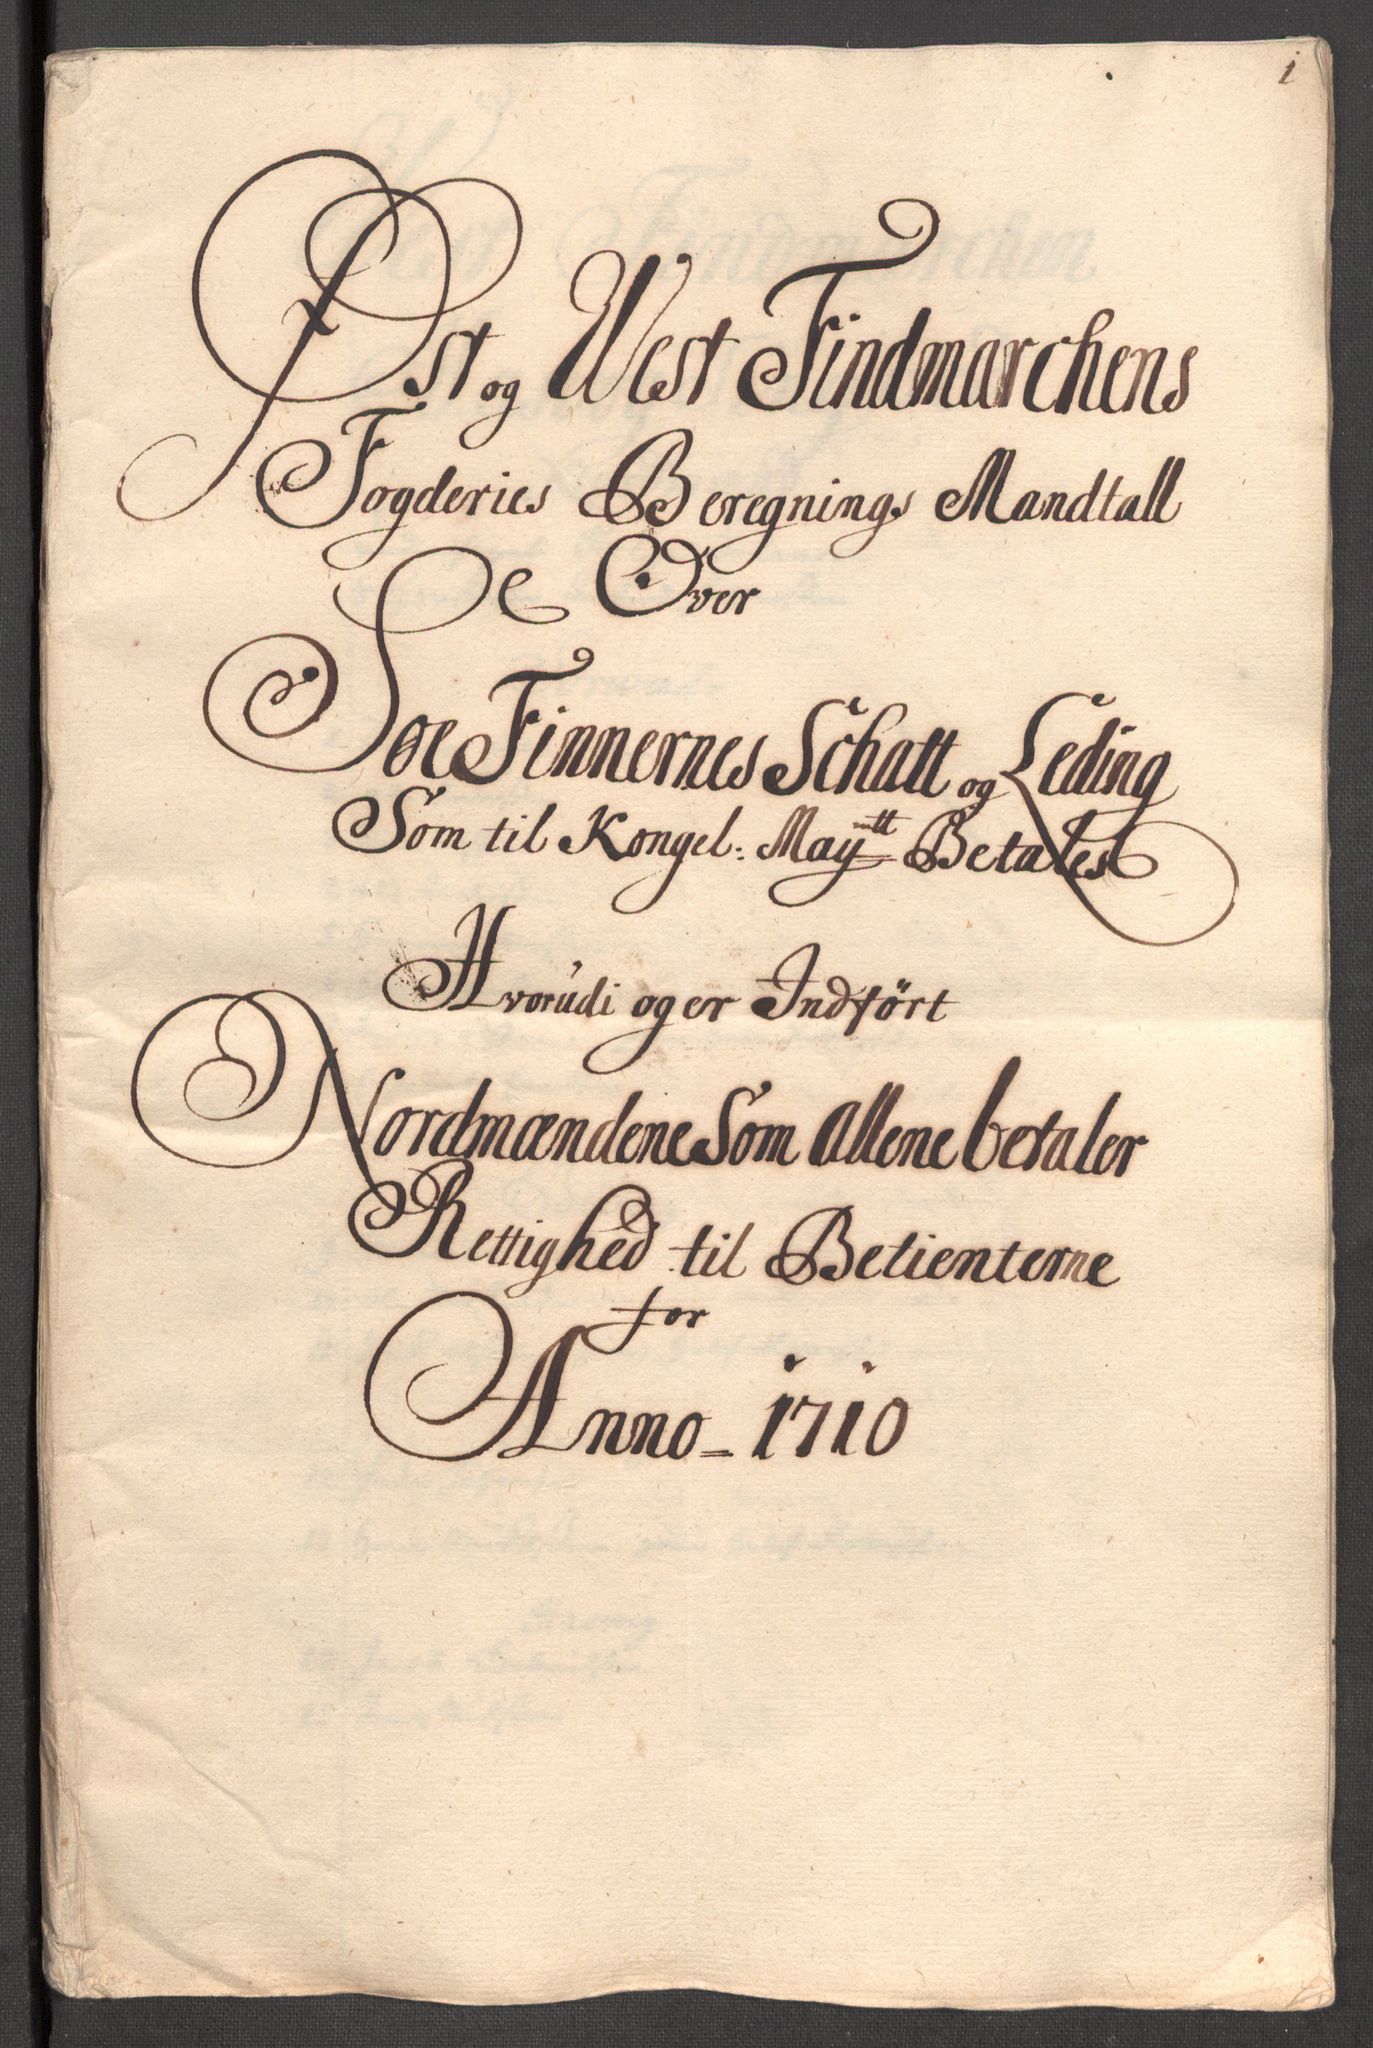 1
Øst og West Findmarchens
Fogderies Beregnings Mandtall
Over
Søe Finnernes Schatt og Leding
Som til Kongel: Mayᵗᵗ Betales
Hvorudi og er Indført
Nordmændene Som allene betaler
Rettighed til Betienterne
for
Anno - 1710